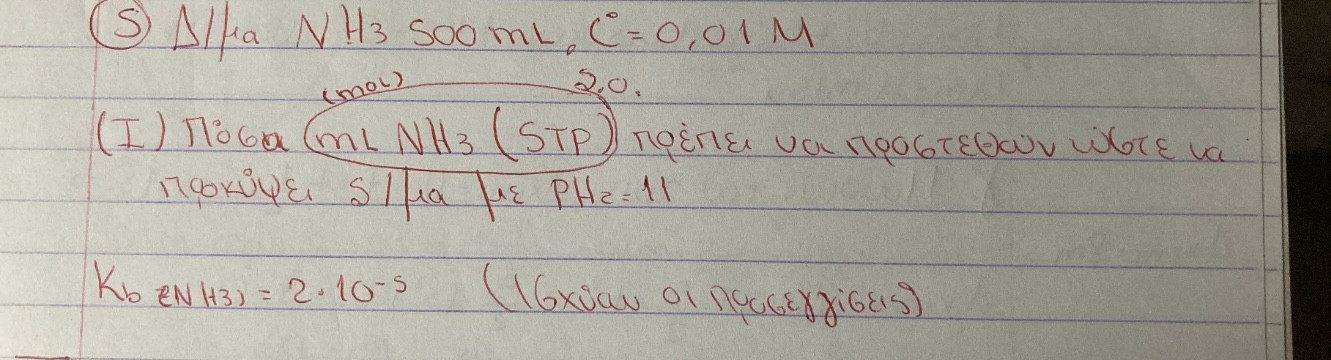 (5) Δ/μα NH3 500mL, C=0,01M
(mol) 2.0.
(I) Πόσα (mL NH3 (STP) πρέπει να προστεθούν ώστε να
προκύψει δ/μα με PH2=11
Kb (NH3) = 2·10-5 (Ισχύουν οι προσεγγίσεις)